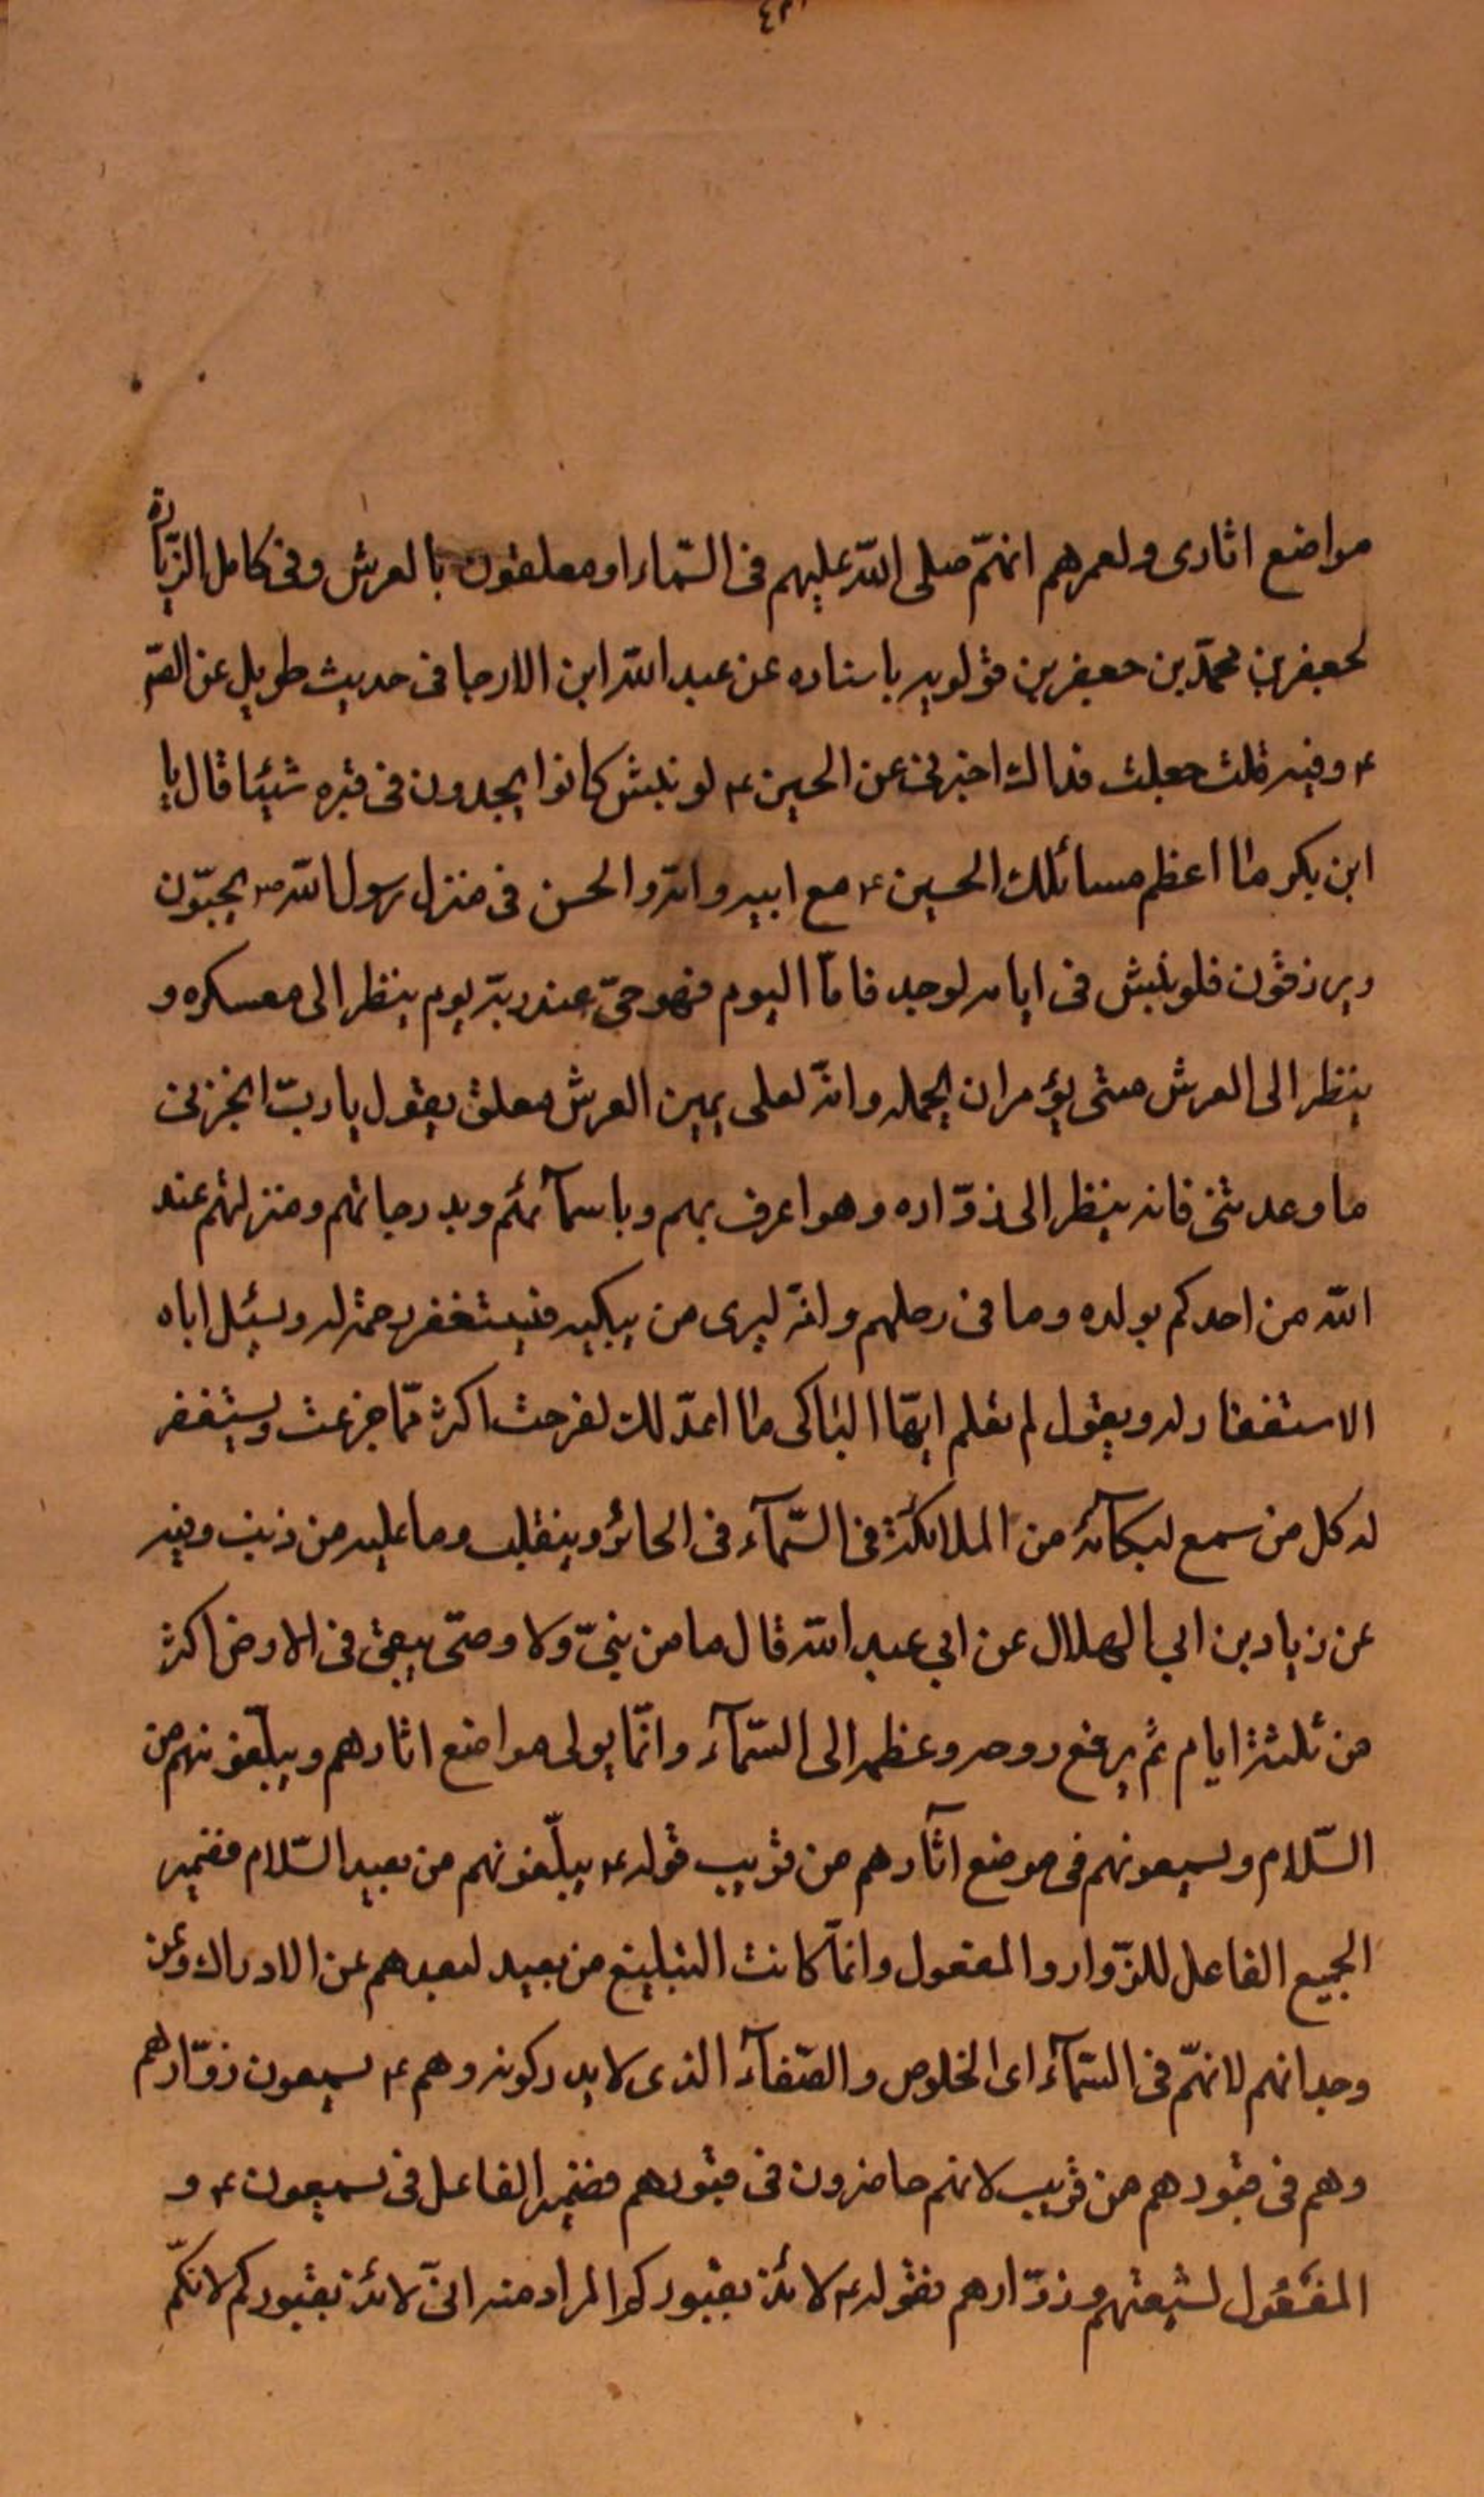 مواضع اثارى ولعمرهم انهّم صلى اللّه عليهم فى السّماء او معلقون بالعرش وفى كامل الزّيارة
لجعفر بن محمّد بن جعفر بن قولويه باسناده عن عبد اللّه ابن الارجا فى حديث طويل عن الصّ
ع وفيه قلت جعلت فداك اخبرنى عن الحسين ع لو نبش كانوا يجدون فى قبره شيئا قال يا
ابن بكر ما اعظم مسائلك الحسين ع مع ابيه وامّه والحسن فى منزل رسول اللّه ص يحبّون
ويرزقون فلو نبش فى ايامه لوجد فامّا اليوم فهو حىّ عند ربّه يوم ينظر الى معسكره و
ينظر الى العرش متى يؤمر ان يحمله وانّه لعلى يمين العرش معلق يقول يا ربّ انجز لى
ما وعدتنى فانه ينظر الى زوّاره وهو اعرف بهم وباسمآئهم وبدرجاتهم ومنزلتهم عند
اللّه من احدكم بولده وما فى رحلهم وانّه ليرى من يبكيه فيستغفر رحمة له ويسئل اباه
الاستغفار له ويقول لم تعلم ايّها الباكى ما اعدّ لك لفرحت اكثر ممّا جزعت ويستغفر
له كل من سمع لبكآئه من الملائكة فى السّمآء فى الحائر وينقلب وما عليه من ذنب وفيه
عن زياد بن ابى الهلال عن ابى عبد اللّه قال ما من نبىّ ولا وصىّ يبقى فى الارض اكثر
من ثلثة ايام ثم يرفع روحه وعظمه الى السّمآء وانّما يولى مواضع اثارهم ويبلّغونهم من
السّلام ويسمعونهم فى موضع آثارهم من قريب قوله ع يبلّغونهم من بعيد السّلام فضمير
الجميع الفاعل للزّوار والمفعول وانمّا كانت التبليغ من بعيد لبعدهم عن الادراك وعن
وجدانهم لانهّم فى السّمآء اى الخلوص والصّفآء الذى لا يدركونه وهم ع يسمعون زوّارهم
وهم فى قبورهم من قريب لانهم حاضرون فى قبورهم فضمير الفاعل فى يسمعون ع و
المفعول لشيعتهم وزوّارهم بقوله ع لائذ بقبوركم المراد منه انّى لائذ بقبوركم لانكّم